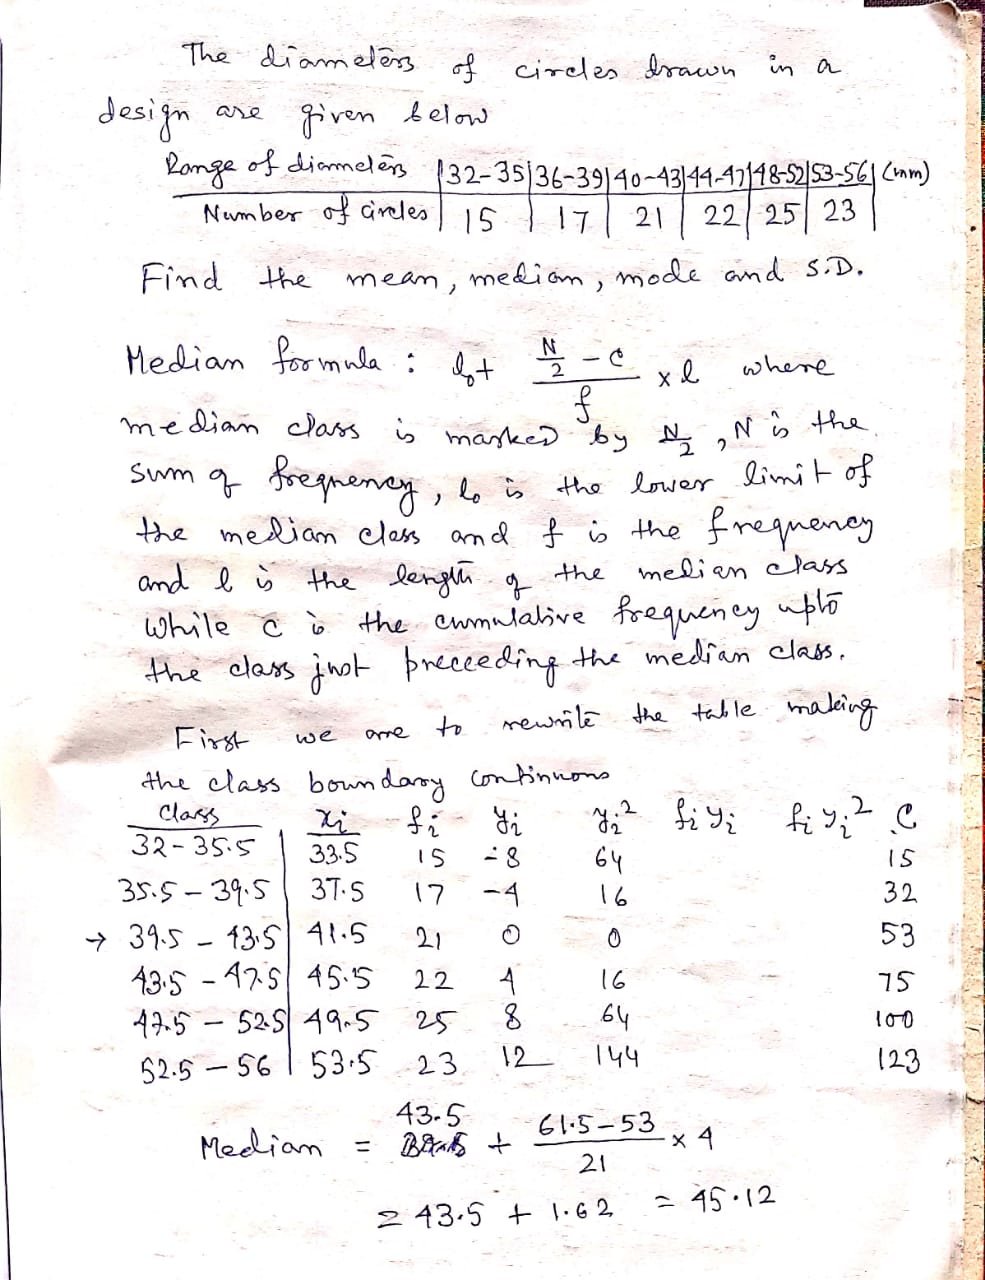 The diameters of circles drawn in a
design are given below
Range of diameters | 32-35 | 36-39 | 40-43 | 44-47 | 48-52 | 53-56 | (mm)
Number of circles | 15 | 17 | 21 | 22 | 25 | 23 |
Find the mean, median, mode and S.D.
Median formula : l₀ + (N/2 - c)/f × l where
median class is marked by N/2, N is the
sum of frequency, l₀ is the lower limit of
the median class and f is the frequency
and l is the length of the median class
while c is the cumulative frequency upto
the class just preceeding the median class.
First we are to rewrite the table making
the class boundary continuous
Class xi fi yi yi² fiyi fiyi² C
32-35.5 33.5 15 -8 64 15
35.5-39.5 37.5 17 -4 16 32
→ 39.5-43.5 41.5 21 0 0 53
43.5-47.5 45.5 22 4 16 75
47.5-52.5 49.5 25 8 64 100
52.5-56 53.5 23 12 144 123
Median = 43.5 + (61.5-53)/21 × 4
= 43.5 + 1.62 = 45.12